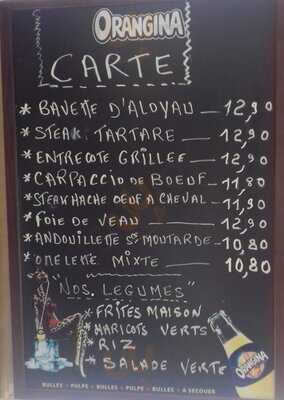 ORANGINA
CARTE
* BAVETTE D'ALOYAU — 12,90
* STEAK TARTARE — 12,90
* ENTRECOTE GRILLEE — 12,90
* CARPACCIO DE BOEUF - 11,80
* STEAK HACHE OEUF A CHEVAL - 11,90
* FOIE DE VEAU — 12,90
* ANDOUILLETTE Sce MOUTARDE - 10,80
* OMELETTE MIXTE — 10,80
"NOS LEGUMES"
* FRITES MAISON
* HARICOTS VERTS
* RIZ
* SALADE VERTE
ORANGINA
BULLES • PULPE • BULLES • PULPE • BULLES • A SECOUER